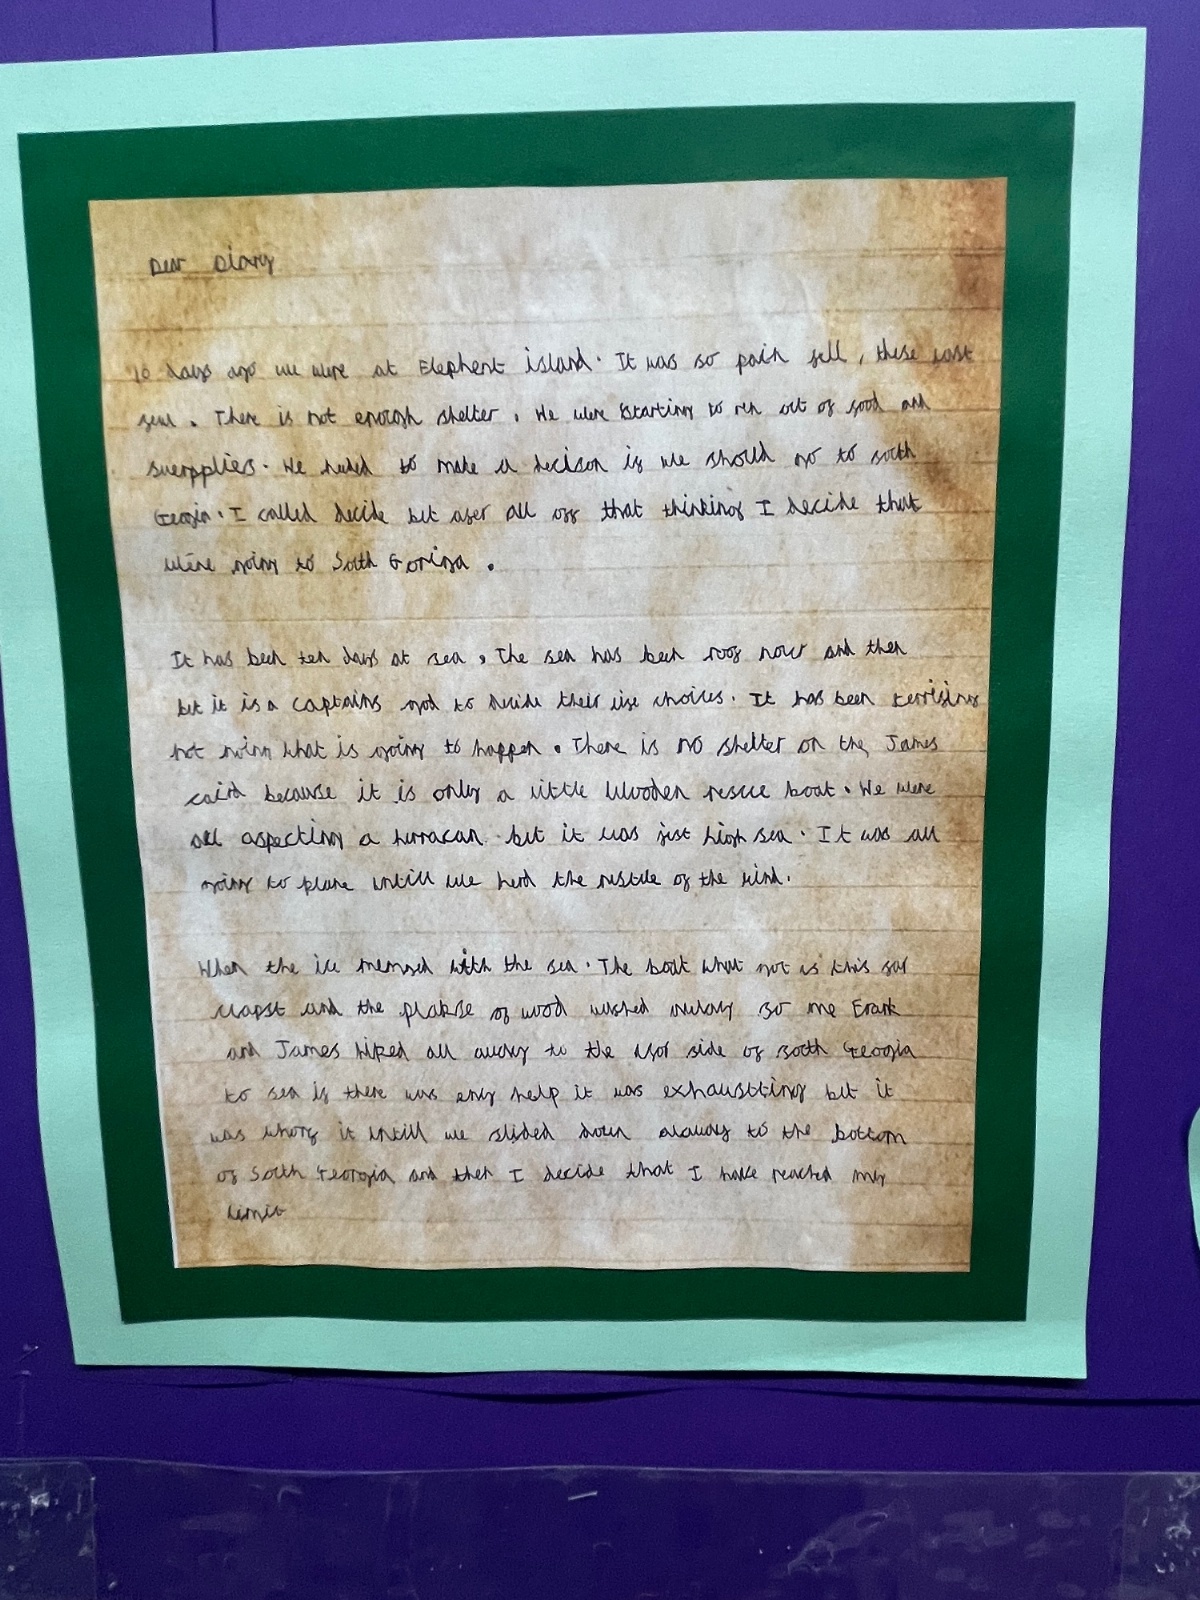 Dear Diary
10 days ago we were at Elephent island. It was so pain fell, these last
. There is not enough shelter. We were starting to run out of food and
suerppliers. We neded to make a decison if we should go to south
Georgia. I called decide but after all off that thinking I decide that
we're going to South Goriga.
It has been ten days at sea. The sea has been roof now and then
but it is a captains god to decide their life choices. It has been terrifing
not nwing what is going to happen. There is no shelter on the James
caird because it is only a little wooden rescue boat. We were
all aspecting a hurracan but it was just high sea. It was all
going to plane untill we herd the of the wind.
When the ice memred with the sea. The boat what got is this far
clapst and the plankse of wood wushed awaay so me Frank
and James hiked all away to the side of south Georgia
to sea if there was eny help it was exhaustting but it
was it untill we slided down alaway to the bottom
of South Georgia and then I decide that I have reached my
limit